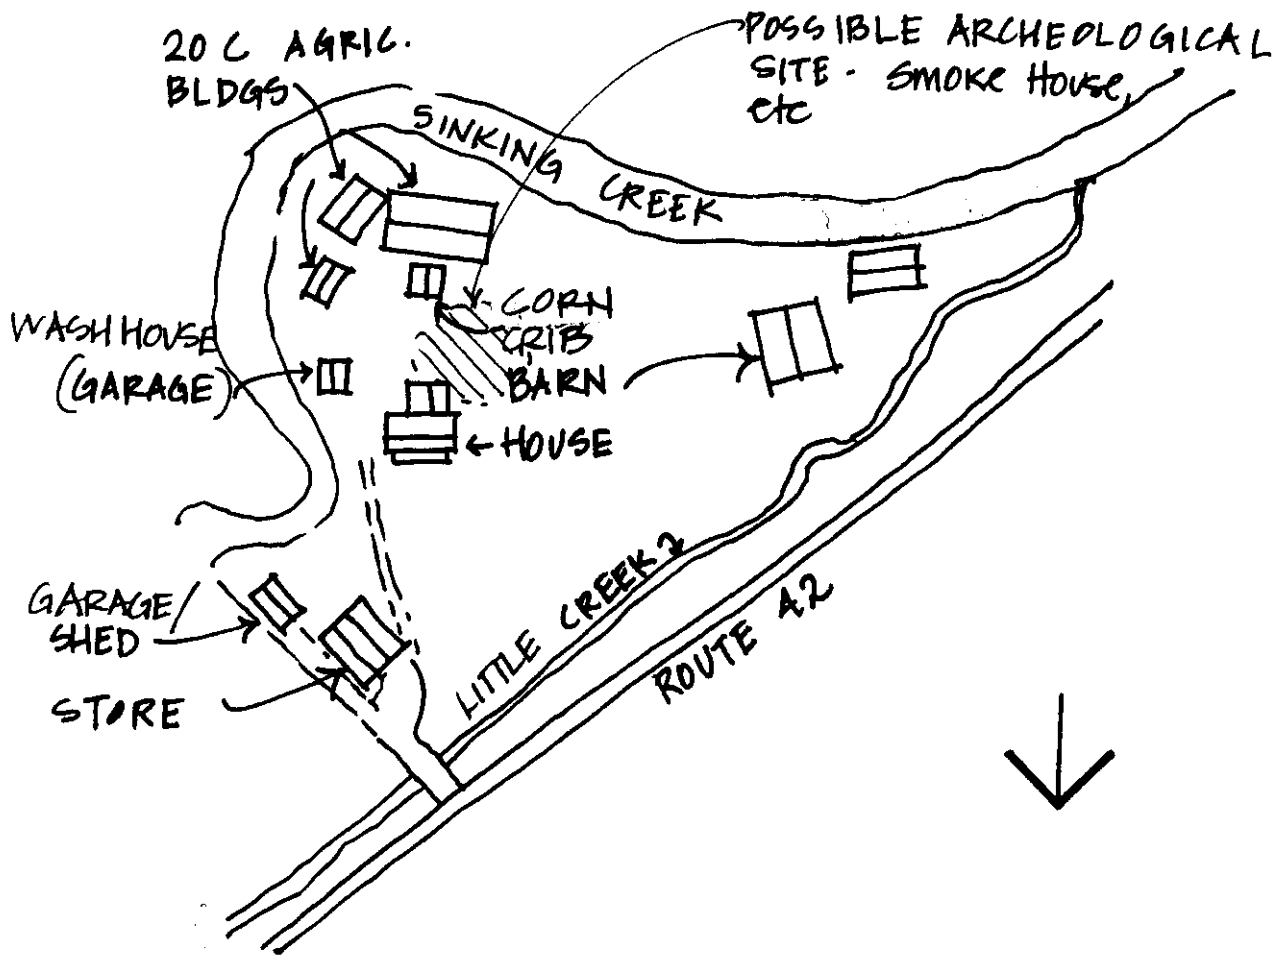 20 C AGRIC.
BLDGS
POSSIBLE ARCHEOLOGICAL
SITE - SMOKE HOUSE,
etc
SINKING CREEK
CORN
CRIB
WASH HOUSE
(GARAGE)
BARN
HOUSE
GARAGE/
SHED
STORE
LITTLE CREEK
ROUTE 42